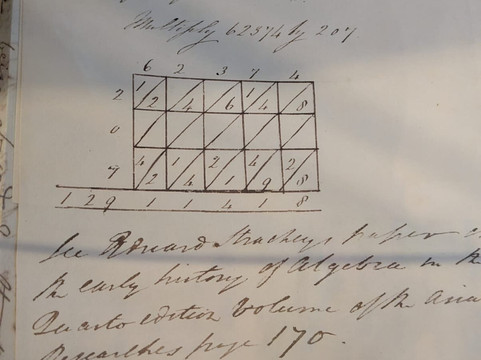 Multiply 62374 by 207.
6 2 3 7 4
2 1 2 4 6 1 4 8
0
7 4 2 1 4 2 1 4 9 2 8
1 2 9 1 1 4 1 8
See Edward Strachey's paper
the early history of Algebra in the
Quarto edition Volume of the Asia
Researches page 170.